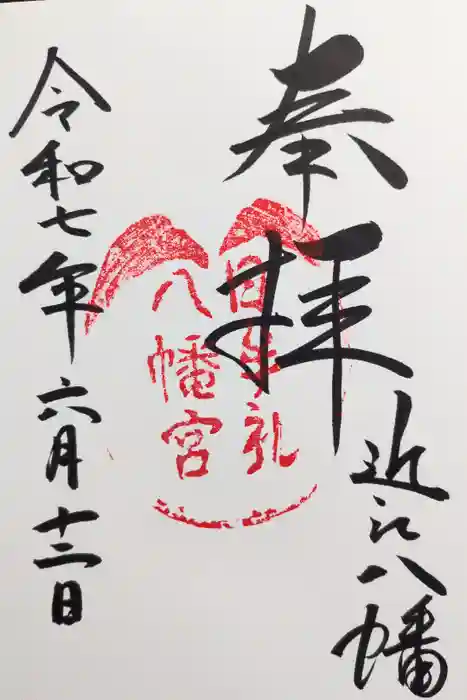 奉拝
近江八幡
日牟礼
八幡宮
令和七年六月十三日